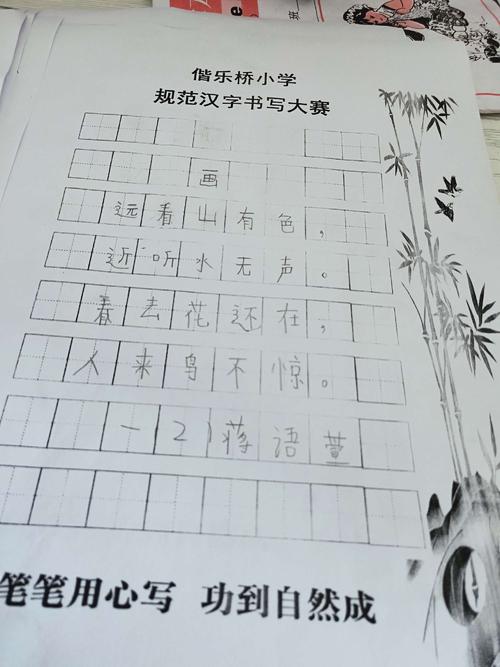 偕乐桥小学
规范汉字书写大赛
画
远看山有色，
近听水无声。
春去花还在，
人来鸟不惊。
一(2)蒋语萱
笔笔用心写 功到自然成